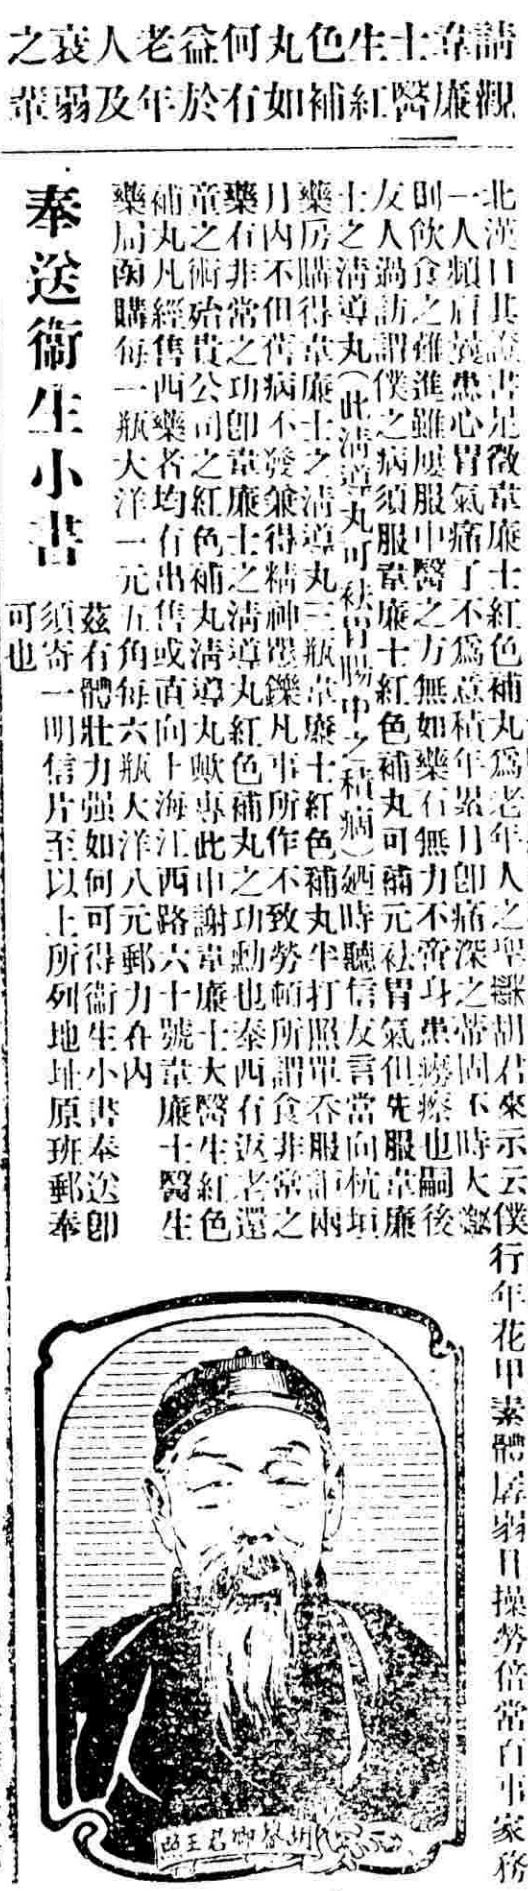 請觀韋廉士醫生紅色補丸如何有益於老年人及衰弱之輩
北漢口其證書足徵韋廉士紅色補丸為老年人之聖藥胡君來示云僕行年花甲素體孱弱日操勞倍常百事家務
一人頻肩患心胃氣痛了不為意積年累月即痛深之蒂固不時大發
則飲食之難進雖屢服中醫之方無如藥石無力不啻身患癆瘵也嗣後
友人過訪謂僕之病須服韋廉士紅色補丸可補元袪胃氣但先服韋廉
士之清導丸(此清導丸可袪胃腸中之積痾)迺時聽信友言當向杭垣
藥房購得韋廉士之清導丸三瓶韋廉士紅色補丸半打照單吞服詎兩
月內不但舊病不發兼得精神矍鑠凡事所作不致勞頓所謂食非常之
藥有非常之功即韋廉士之清導丸紅色補丸之功勳也泰西有返老還
童之術殆貴公司之紅色補丸清導丸歟專此申謝韋廉士大醫生紅色
補丸凡經售西藥者均有出售或直向上海江西路六十號韋廉士醫生
藥局函購每一瓶大洋一元五角每六瓶大洋八元郵力在內
奉送衛生小書
茲有體壯力強如何可得衛生小書奉送即
須寄一明信片至以上所列地址原班郵奉
可也